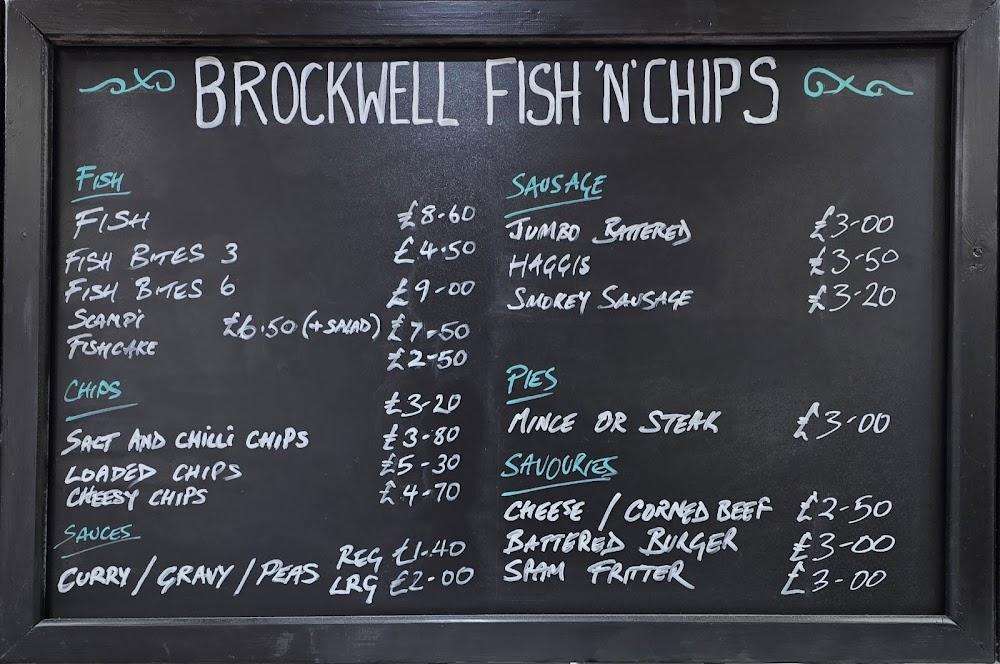 BROCKWELL FISH 'N' CHIPS
FISH
FISH £8-60
FISH BITES 3 £4.50
FISH BITES 6 £9-00
SCAMPI £6.50 (+SALAD) £7-50
FISHCAKE £2-50
CHIPS £3-20
SALT AND CHILLI CHIPS £3-80
LOADED CHIPS £5-30
CHEESY CHIPS £4-70
SAUCES
CURRY / GRAVY / PEAS REG £1.40
LRG £2-00
SAUSAGE
JUMBO BATTERED £3-00
HAGGIS £3-50
SMOKEY SAUSAGE £3-20
PIES
MINCE OR STEAK £3-00
SAVOURIES
CHEESE / CORNED BEEF £2-50
BATTERED BURGER £3-00
SPAM FRITTER £3-00